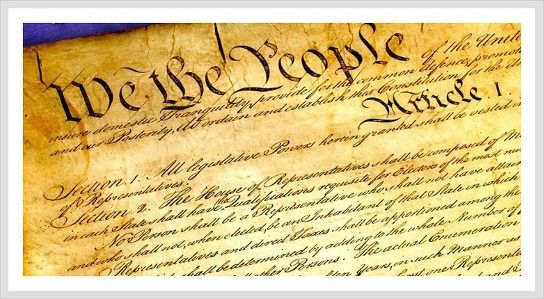 We the People of the Unite
insure domestic Tranquility, provide for the common defence, promote
and our Posterity, do ordain and establish this Constitution for the Un
Article I.
Section 1. All legislative Powers herein granted shall be vested in
of Representatives.
Section 2. The House of Representatives shall be composed of M
in each State shall have the Qualifications requisite for Electors of the most num
No Person shall be a Representative who shall not have attain
and who shall not, when elected, be an Inhabitant of that State in which
Representatives and direct Taxes shall be apportioned among the
shall be determined by adding to the whole Number of
other Persons. The actual Enumeration
ten Years, in such Manner as
least one Represent